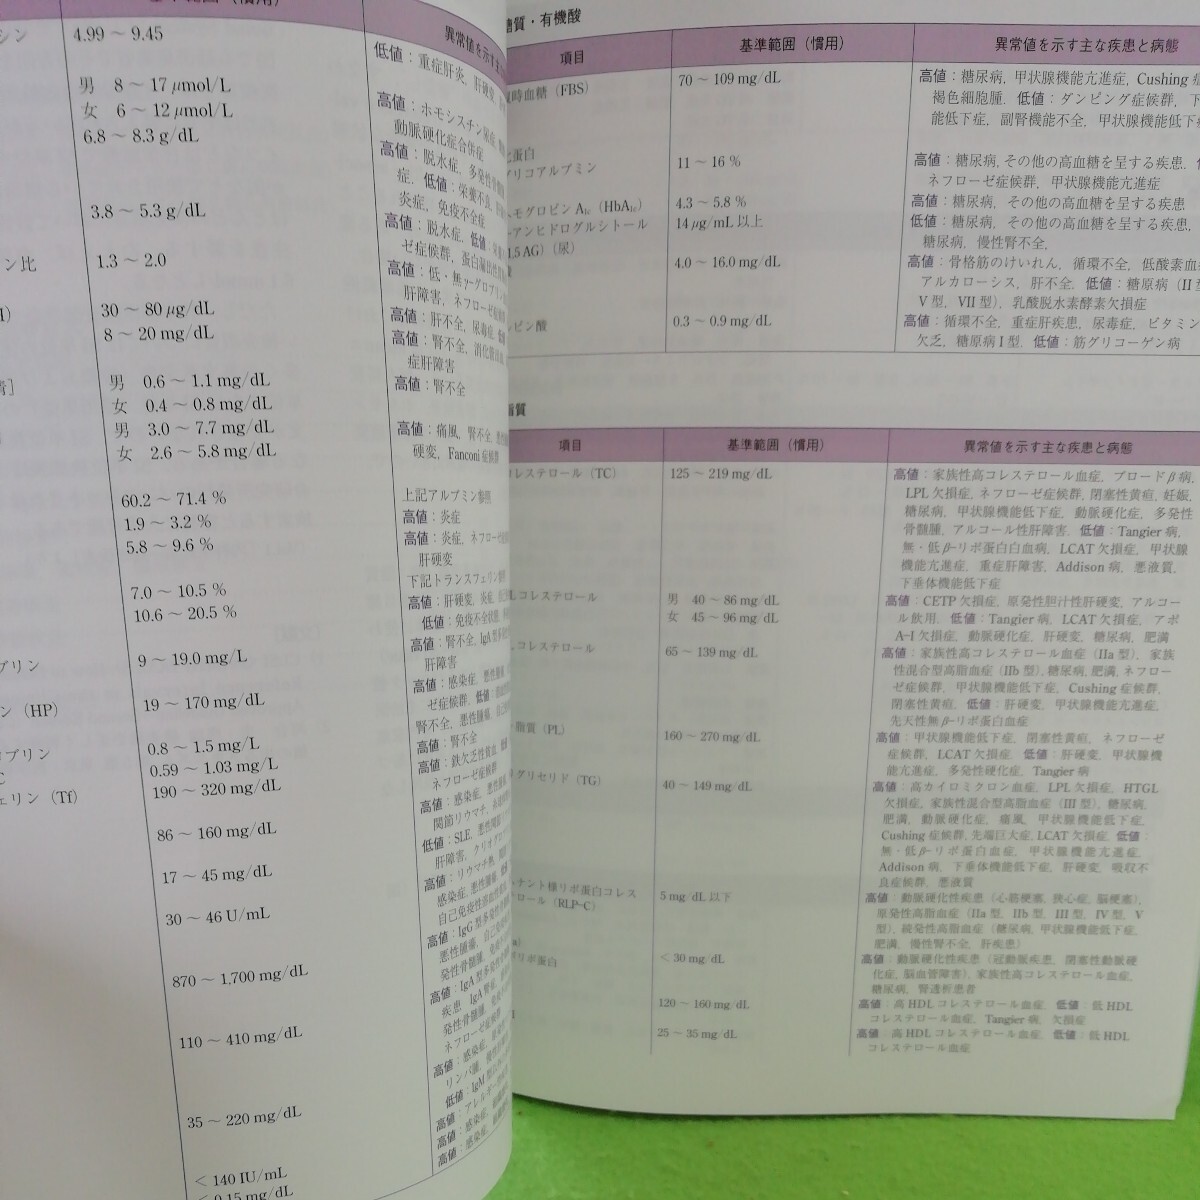 基準範囲（慣用）
シン
4.99 ～ 9.45
男 8 ～ 17 μmol/L
女 6 ～ 12 μmol/L
6.8 ～ 8.3 g/dL
3.8 ～ 5.3 g/dL
ン比
1.3 ～ 2.0
30 ～ 80 μg/dL
8 ～ 20 mg/dL
男 0.6 ～ 1.1 mg/dL
女 0.4 ～ 0.8 mg/dL
男 3.0 ～ 7.7 mg/dL
女 2.6 ～ 5.8 mg/dL
60.2 ～ 71.4 %
1.9 ～ 3.2 %
5.8 ～ 9.6 %
7.0 ～ 10.5 %
10.6 ～ 20.5 %
ブリン
9 ～ 19.0 mg/L
ン（HP）
19 ～ 170 mg/dL
ロブリン
0.8 ～ 1.5 mg/L
C
0.59 ～ 1.03 mg/L
ェリン（Tf）
190 ～ 320 mg/dL
86 ～ 160 mg/dL
17 ～ 45 mg/dL
30 ～ 46 U/mL
870 ～ 1,700 mg/dL
110 ～ 410 mg/dL
35 ～ 220 mg/dL
＜ 140 IU/mL
＜ 0.15 mg/dL
異常値を示す
低値：重症肝炎，肝硬変，
高値：ホモシスチン
動脈硬化症合併症
高値：脱水症，多発性骨髄
症．低値：栄養不良，
炎症，免疫不全症
高値：脱水症．低値：
ゼ症候群，蛋白漏出性
高値：低・無γ-グロブリン
肝障害，ネフローゼ症候群
高値：肝不全，尿毒症．低値
高値：腎不全，消化管
症肝障害
高値：腎不全
高値：痛風，腎不全，
硬変，Fanconi 症候群
上記アルブミン参照
高値：炎症
高値：炎症，ネフローゼ
肝硬変
下記トランスフェリン参照
高値：肝硬変，炎症，
低値：免疫不全状態，
高値：腎不全，IgA 型多発性
肝障害
高値：感染症，悪性腫瘍，
ゼ症候群．低値：
腎不全，悪性腫瘍，自己
高値：腎不全
高値：鉄欠乏性貧血，
ネフローゼ症候群
高値：感染症，悪性腫瘍，
関節リウマチ，
低値：SLE，悪性関節リウ
肝障害，クリオグロブ
高値：リウマチ熱，関節
感染症，悪性腫瘍，
自己免疫性溶血性貧血
高値：IgG 型多発性骨髄
悪性腫瘍，自己免疫
発性骨髄腫，免疫
高値：IgA 型多発性骨髄
疾患，IgA 腎症，
発性骨髄腫，免疫
ネフローゼ症候群
高値：感染症，
リンパ腫，慢性肝
低値：IgM 型以外
高値：アレルギー
高値：感染症，
高値：感染症，
糖質・有機酸
項目
基準範囲（慣用）
異常値を示す主な疾患と病態
時血糖（FBS）
70 ～ 109 mg/dL
高値：糖尿病，甲状腺機能亢進症，Cushing 症
褐色細胞腫．低値：ダンピング症候群，下
能低下症，副腎機能不全，甲状腺機能低下症
蛋白
リコアルブミン
11 ～ 16 %
高値：糖尿病，その他の高血糖を呈する疾患．低
ネフローゼ症候群，甲状腺機能亢進症
モグロビン A1c（HbA1c）
4.3 ～ 5.8 %
高値：糖尿病，その他の高血糖を呈する疾患
-アンヒドログルシトール
1,5 AG）（尿）
14 μg/mL 以上
低値：糖尿病，その他の高血糖を呈する疾患，
糖尿病，慢性腎不全，
4.0 ～ 16.0 mg/dL
高値：骨格筋のけいれん，循環不全，低酸素血
アルカローシス，肝不全．低値：糖原病（II 型
V 型，VII 型），乳酸脱水素酵素欠損症
ビン酸
0.3 ～ 0.9 mg/dL
高値：循環不全，重症肝疾患，尿毒症，ビタミン
欠乏，糖原病 I 型．低値：筋グリコーゲン病
脂質
項目
基準範囲（慣用）
異常値を示す主な疾患と病態
コレステロール（TC）
125 ～ 219 mg/dL
高値：家族性高コレステロール血症，ブロードβ病，
LPL 欠損症，ネフローゼ症候群，閉塞性黄疸，妊娠，
糖尿病，甲状腺機能低下症，動脈硬化症，多発性
骨髄腫，アルコール性肝障害．低値：Tangier 病，
無・低β-リポ蛋白白血病，LCAT 欠損症，甲状腺
機能亢進症，重症肝障害，Addison 病，悪液質，
下垂体機能低下症
Lコレステロール
男 40 ～ 86 mg/dL
女 45 ～ 96 mg/dL
高値：CETP 欠損症，原発性胆汁性肝硬変，アルコー
ル飲用．低値：Tangier 病，LCAT 欠損症，アポ
A-I 欠損症，動脈硬化症，肝硬変，糖尿病，肥満
Lコレステロール
65 ～ 139 mg/dL
高値：家族性高コレステロール血症（IIa 型），家族
性混合型高脂血症（IIb 型），糖尿病，肥満，ネフロー
ゼ症候群，甲状腺機能低下症，Cushing 症候群，
閉塞性黄疸．低値：肝硬変，甲状腺機能亢進症，
先天性無β-リポ蛋白血症
脂質（PL）
160 ～ 270 mg/dL
高値：甲状腺機能低下症，閉塞性黄疸，ネフローゼ
症候群，LCAT 欠損症．低値：肝硬変，甲状腺機
能亢進症，多発性硬化症，Tangier 病
グリセリド（TG）
40 ～ 149 mg/dL
高値：高カイロミクロン血症，LPL 欠損症，HTGL
欠損症，家族性混合型高脂血症（III 型），糖尿病，
肥満，動脈硬化症，痛風，甲状腺機能低下症，
Cushing 症候群，先端巨大症，LCAT 欠損症．低値：
無・低β-リポ蛋白血症，甲状腺機能亢進症，
Addison 病，下垂体機能低下症，肝硬変，吸収不
良症候群，悪液質
ナント様リポ蛋白コレス
ロール（RLP-C）
5 mg/dL 以下
高値：動脈硬化性疾患（心筋梗塞，狭心症，脳梗塞），
原発性高脂血症（IIa 型，IIb 型，III 型，IV 型，V
型），続発性高脂血症（糖尿病，甲状腺機能低下症，
肥満，慢性腎不全，肝疾患）
a）
リポ蛋白
＜ 30 mg/dL
高値：動脈硬化性疾患（冠動脈疾患，閉塞性動脈硬
化症，脳血管障害），家族性高コレステロール血症，
糖尿病，腎透析患者
120 ～ 160 mg/dL
高値：高 HDL コレステロール血症．低値：低 HDL
コレステロール血症，Tangier 病，欠損症
25 ～ 35 mg/dL
高値：高 HDL コレステロール血症．低値：低 HDL
コレステロール血症